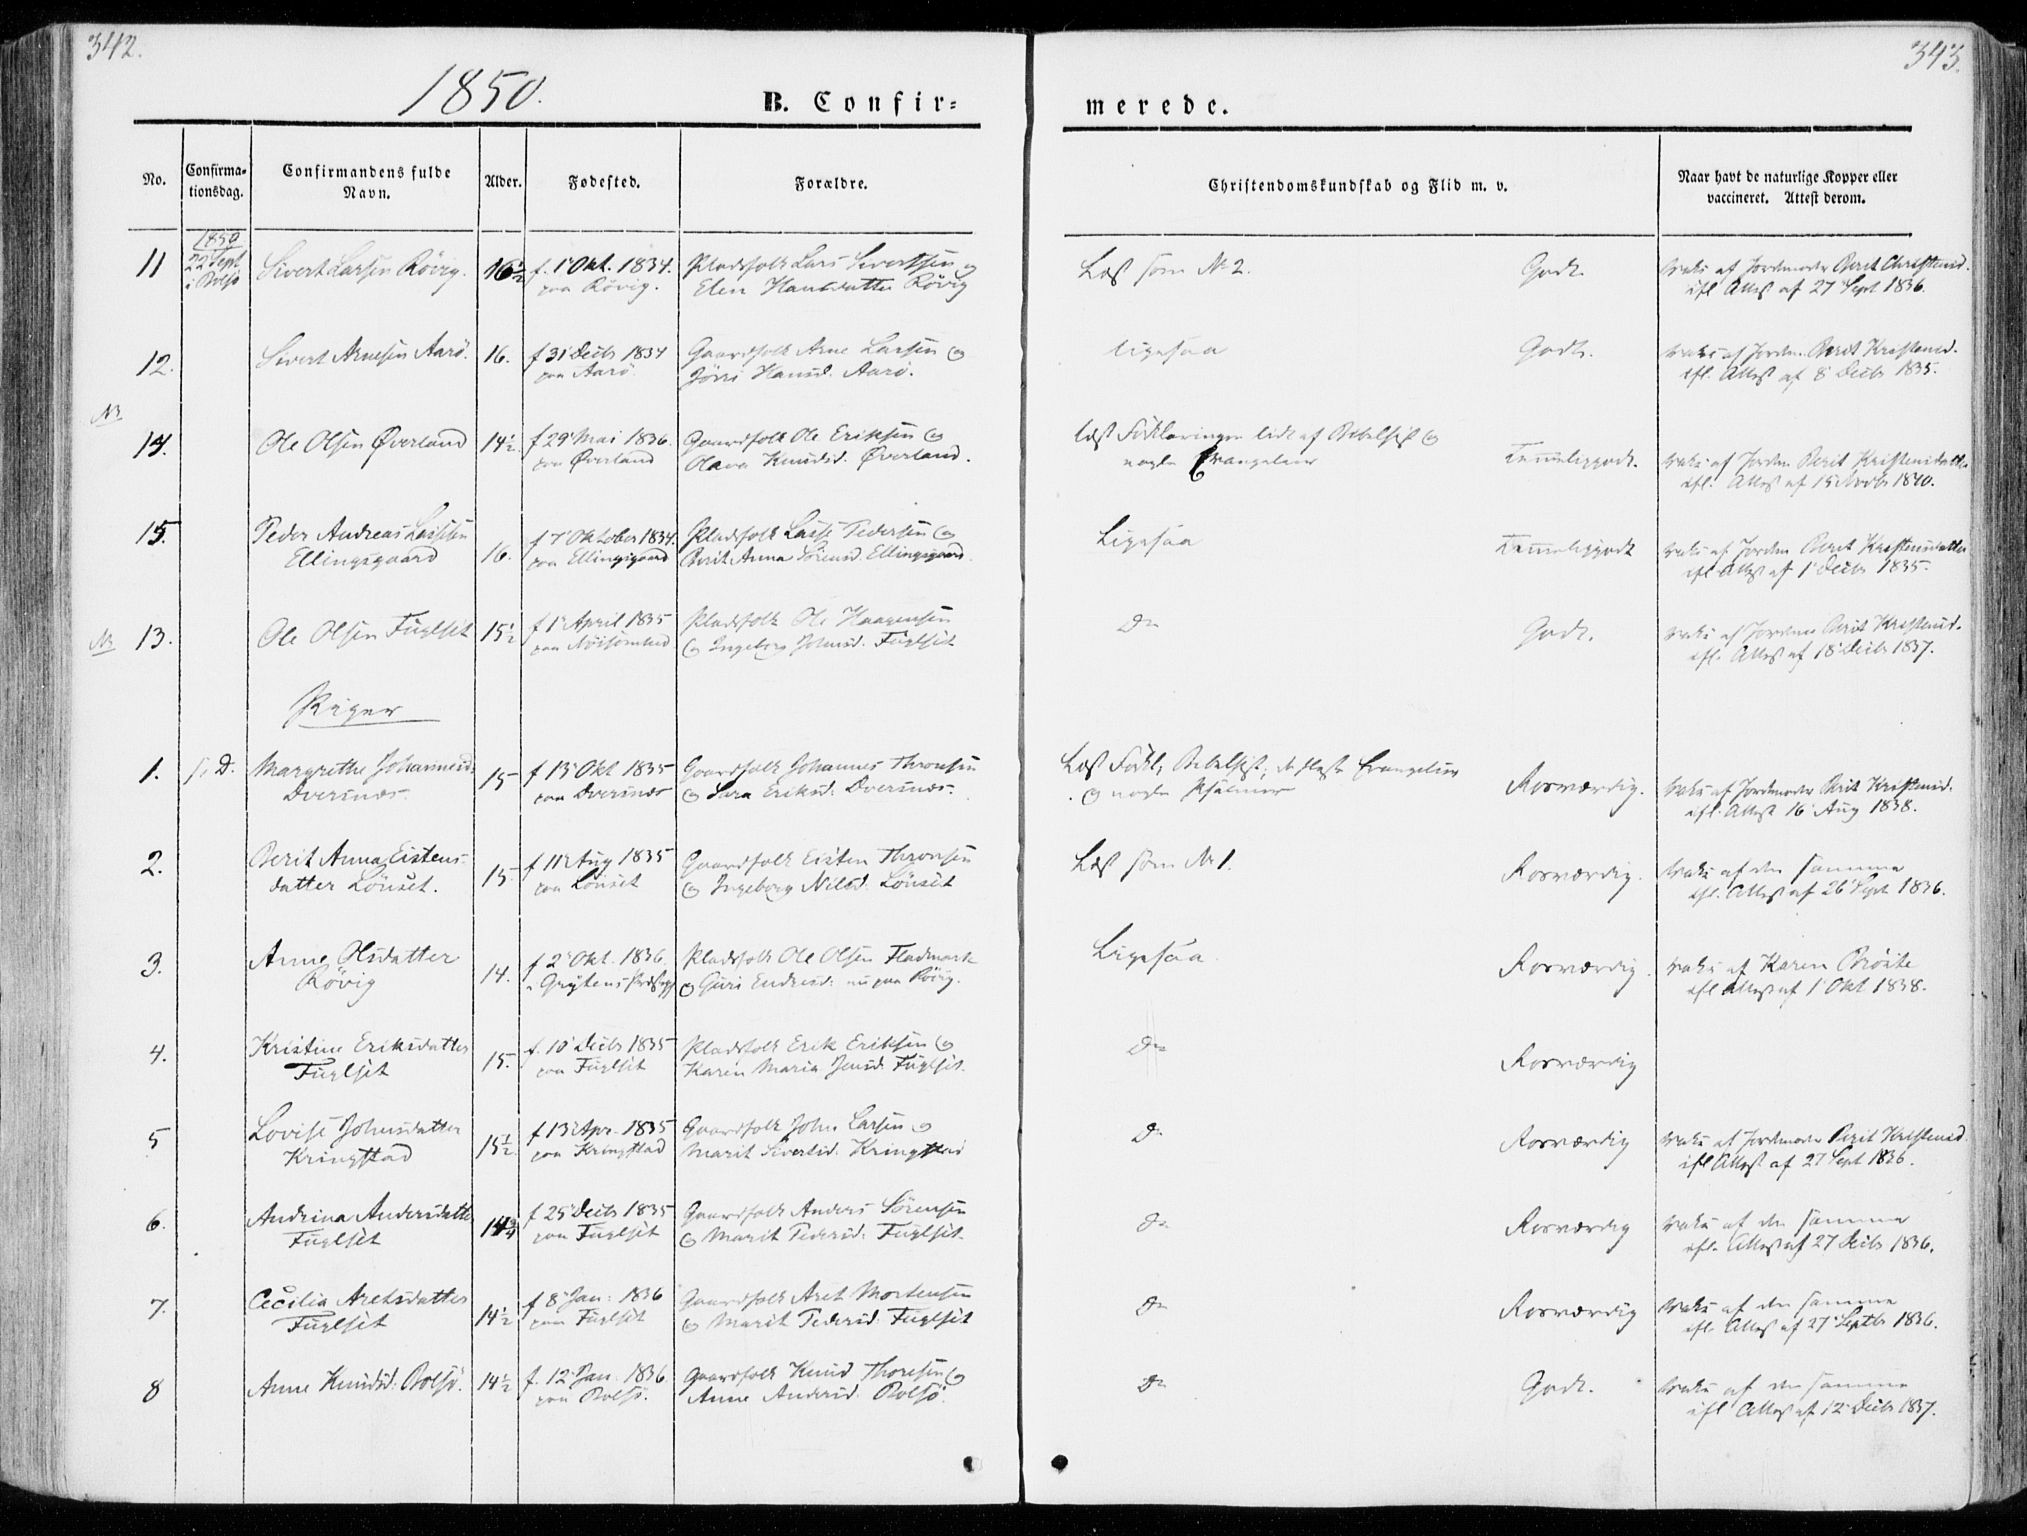 342.
343.
1850.
B. Confir=
merede.
No.
Confirma-
tionsdag.
Confirmandens fulde
Navn.
Alder.
Fødested.
Forældre.
Christendomskundskab og Flid m. v.
Naar havt de naturlige Kopper eller
vaccineret. Attest derom.
11
1850
22 Sept
i Bolsø
Sivert Larsen Rövig.
16½
f. 1 Okt. 1834.
paa Rövig.
Pladsfolk Lars Sivertsen og
Elen Hansdatter Rövig
Læst som No 2.
Godt.
Vaks af Jordmoder Berit Christensd.
ifl. Attest af 27 Sept 1836.
12.
Sivert Arnesen Aarö.
16.
f 31 Decbr 1834
paa Aarö
Gaardfolk Arne Larsen og
Hansd. Aarö.
ligesaa
Godt.
Vaks af Jordm. Berit Kristensd.
ifl. Attest af 8 Decbr 1835.
NB
14.
Ole Olsen Øverland
14½.
f 29 Mai 1836.
paa Øverland
Gaardfolk Ole Eriksen og
Olava Knudsd. Øverland.
læst Forklaringen lidt af Bibelhist og
nogle Evangelier
Temmeliggodt.
Vaks af Jordm Berit Kristensdatter
ifl. Attest af 15 Novbr 1840.
15.
Peder Andreas Lassesen
Ellingsgaard
16.
f 7 Oktober 1834.
paa Ellingsgaard
Pladsfolk Lasse Pedersen og
Berit Anna Sörensd. Ellingsgaard.
Ligesaa
Temmeliggodt
Vaks af Jordm Berit Kristensdatter
ifl Attest af 1 Decbr 1835.
NB
13.
Ole Olsen Fuglset
15½
f 1 April 1835
paa Nöisomhed
Pladsfolk Ole Haagensen
og Ingeborg Johnsd. Fuglset
Do
Godt.
Vaks af Jordm Berit Kristensd.
ifl. Attest af 18 Decbr 1837.
Piger
1.
s. D.
Margrethe Johannesd:
Dversnæs.
15
f 13 Okt 1835
paa Dversnæs
Gaardfolk Johannes Thronsen
og Sara Eriksd. Dversnæs.
Læst Forkl; Bibelhist; de fleste Evangelier
og nogle Psalmer
Rosværdig.
Vaks af Jordmoder Berit Kristensd.
ifl. Attest 16 Aug 1838.
2.
Berit Anna Eistens-
datter Lönset.
15.
f 11 Aug 1835
paa Lönset
Gaardfolk Eisten Thronsen
og Ingeborg Nilsd. Lönset
Læst som No 1.
Rosværdig.
Vaks af den samme
ifl. Attest af 26 Sept 1836.
3.
Anne Olsdatter
Rövig
14.
f 2 Okt. 1836.
Grytens Præstegj
Pladsfolk Ole Olsen Fladmark
og Guri Endresd. nu paa Rövig.
Ligesaa.
Rosværdig.
Vaks af Karen
ifl Attest af 1 Okt 1838.
4.
Kristine Eriksdatter
Fuglset
15.
f. 10 Decbr 1835
paa Fuglset
Pladsfolk Erik Eriksen og
Karen Maria Jensd. Fuglset.
Do
Rosværdig
5
Lovise Johnsdatter
Kringstad
15½.
f 13 Apr. 1835
paa Kringstad
Gaardfolk John Larsen og
Marit Sivertsd. Kringstad
Do
Rosværdig
Vaks af Jordmoder Berit Kristensd.
ifl Attest af 27 Sept 1836.
6.
Andrina Andersdatter
Fuglset
14¾
f 25 Decbr 1835
paa Fuglset
Gaardfolk Anders Sörensen
og Marit Pedersd. Fuglset.
Do
Rosværdig
Vaks af den samme
ifl. Attest af 27 Decbr 1836.
7.
Cecilia Aretsdatter
Fuglset
14½
f 8 Jan: 1836
paa Fuglset
Gaardfolk Aret Mortensen
og Marit Pedersd. Fuglset
Do
Rosværdig
Vaks af den samme
ifl. Attest af 27 Septbr 1836.
8
Anne Knudsd. Bolsö.
14½
f. 12 Jan. 1836
paa Bolsö.
Gaardfolk Knud Thoresen og
Anne Andersd. Bolsö.
Do
Godt.
Vaks af den samme
ifl Attest af 12 Decbr 1837.